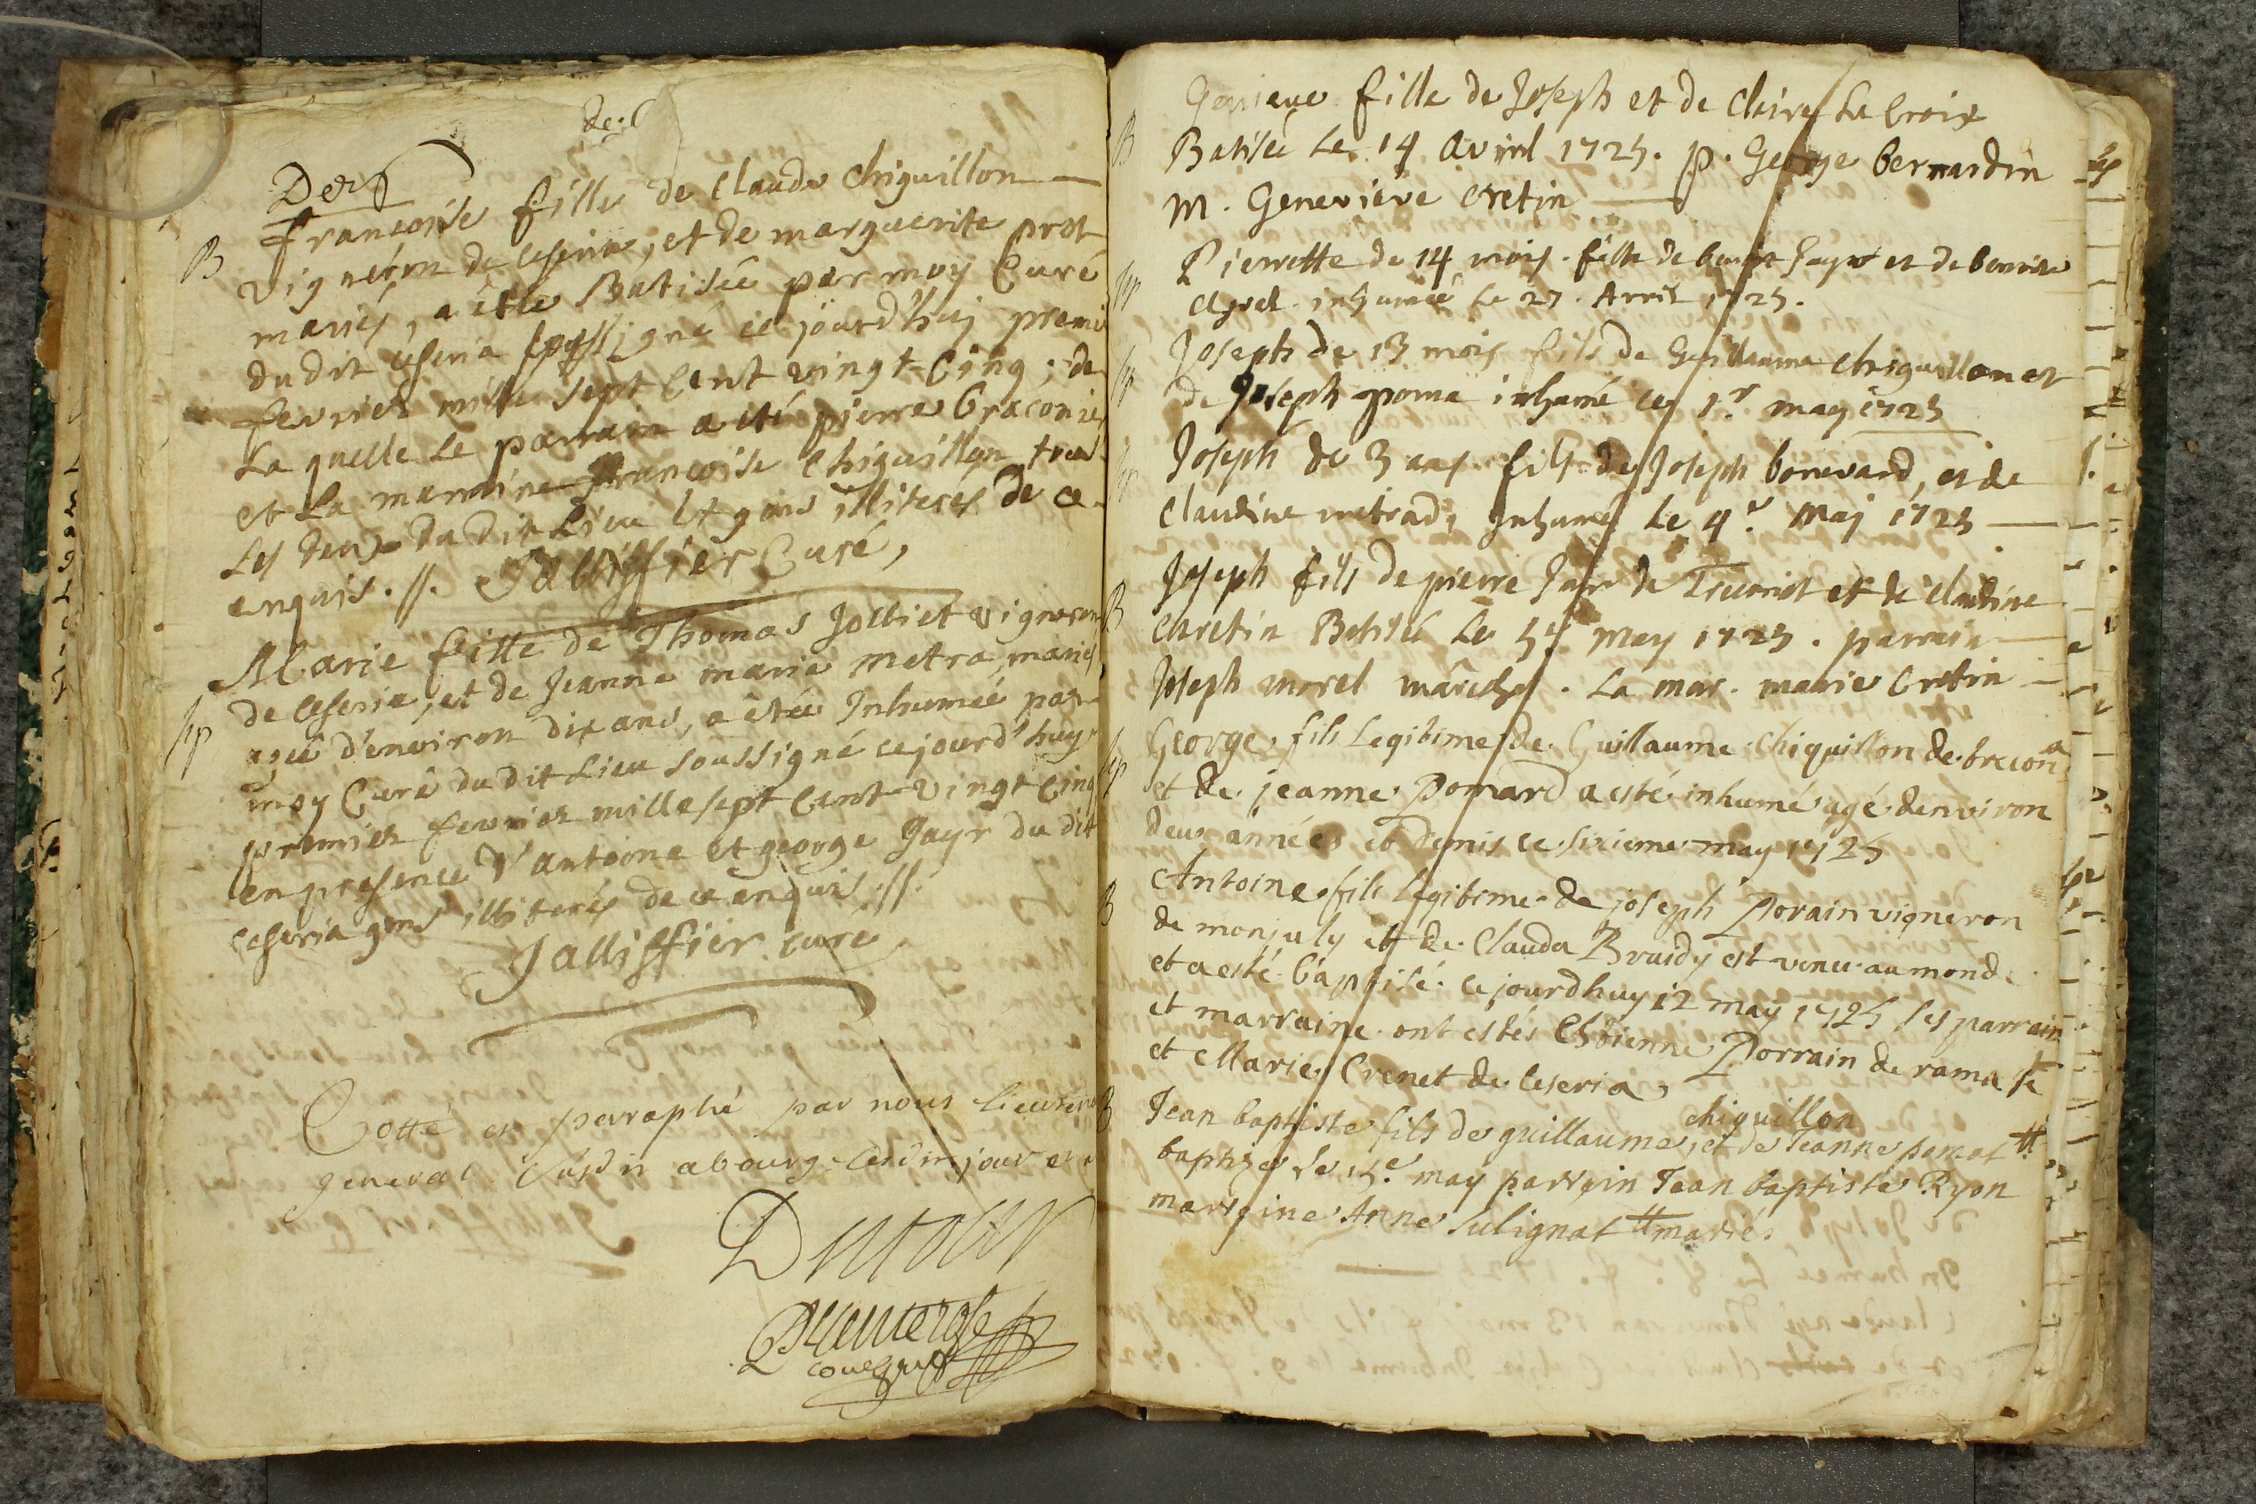 Der
B
françoise fille de claude chiguillon
vigneron de ceseria, et de marguerite prot
mariés, a étée Batisée par moy Curé
du dit ceseria soussigné ce jourd'huj premie
fevrier mille sept cent vingt-Cinq; de
La quelle Le parrain a été pierre
et La marraine francoise chiguillon
Les deux du dit Lieu et gens illiterés de ce
enquis .//. Jallifier Curé,
Marie fille de Thomas Jolliet vigneron
de ceseria, et de Jeanne marie metra, mariés
agée d'environ dix ans, a étée Inhumée par
moy Curé du dit Lieu soussigné ce jourd'huy
premier fevrier mille sept Cent vingt Cinq
en presence d'antoine et george Jayr du dit
ceseria gens illiterés de ce enquis .//.
Jalliffier curé
Cotté et paraphé par nous Lieutenant
general susdit a bourg Lesdits jour et
B
fille de Joseph et de Claire La Croix
Batisée Le 14 Avril 1725. p. George bernardin
M. Genevieve cretin
Pierrette de 14 mois fille de et de
inhumée Le 27. Avril 1725.
Joseph de 13 mois fils de Guillaume chiguillon et
de Joseph poma inhumé Le 1r may 1725
Joseph de 3 ans fils de Joseph bonevard, et de
Claudine metrad, Inhumé Le 4e Maj 1725
B
Joseph fils de pierre Jayr de et de claudine
chretin Batisé Le 5e May 1725. parrain
Joseph morel marechal. La mar. marie Cretin
George fils Legitime de Guillaume chiquillon de
et de jeanne Pomard a esté inhumé agé denviron
deux années et demis ce sixieme may 1725
B
Antoine fils legitime de joseph Porain vigneron
de monjuly et de Clauda est venu au monde
et a esté baptisé ce jourdhuy 12 may 1725 ses parrain
et marraine ont estés Estienne Porrain de ramasse
et Marie Crenet de Ceseria
B
chiguillon
Jean baptiste fils de guillaume, et de Jeanne pomat #
baptisé Le 15e may parrain Jean baptiste Ryon
marraine Anne Sulignat # mariés